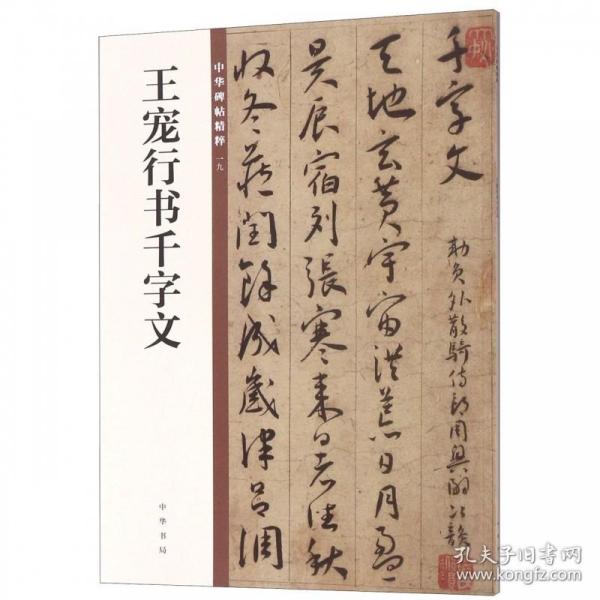 王宠行书千字文
中华碑帖精粹 一九
中华书局
千字文
勅員外散騎侍郎周興嗣次韻
天地玄黄宇宙洪荒日月盈
昃辰宿列張寒来暑往秋
收冬蔵閏餘成歲律吕調
孔夫子旧书网
www.kongfz.com